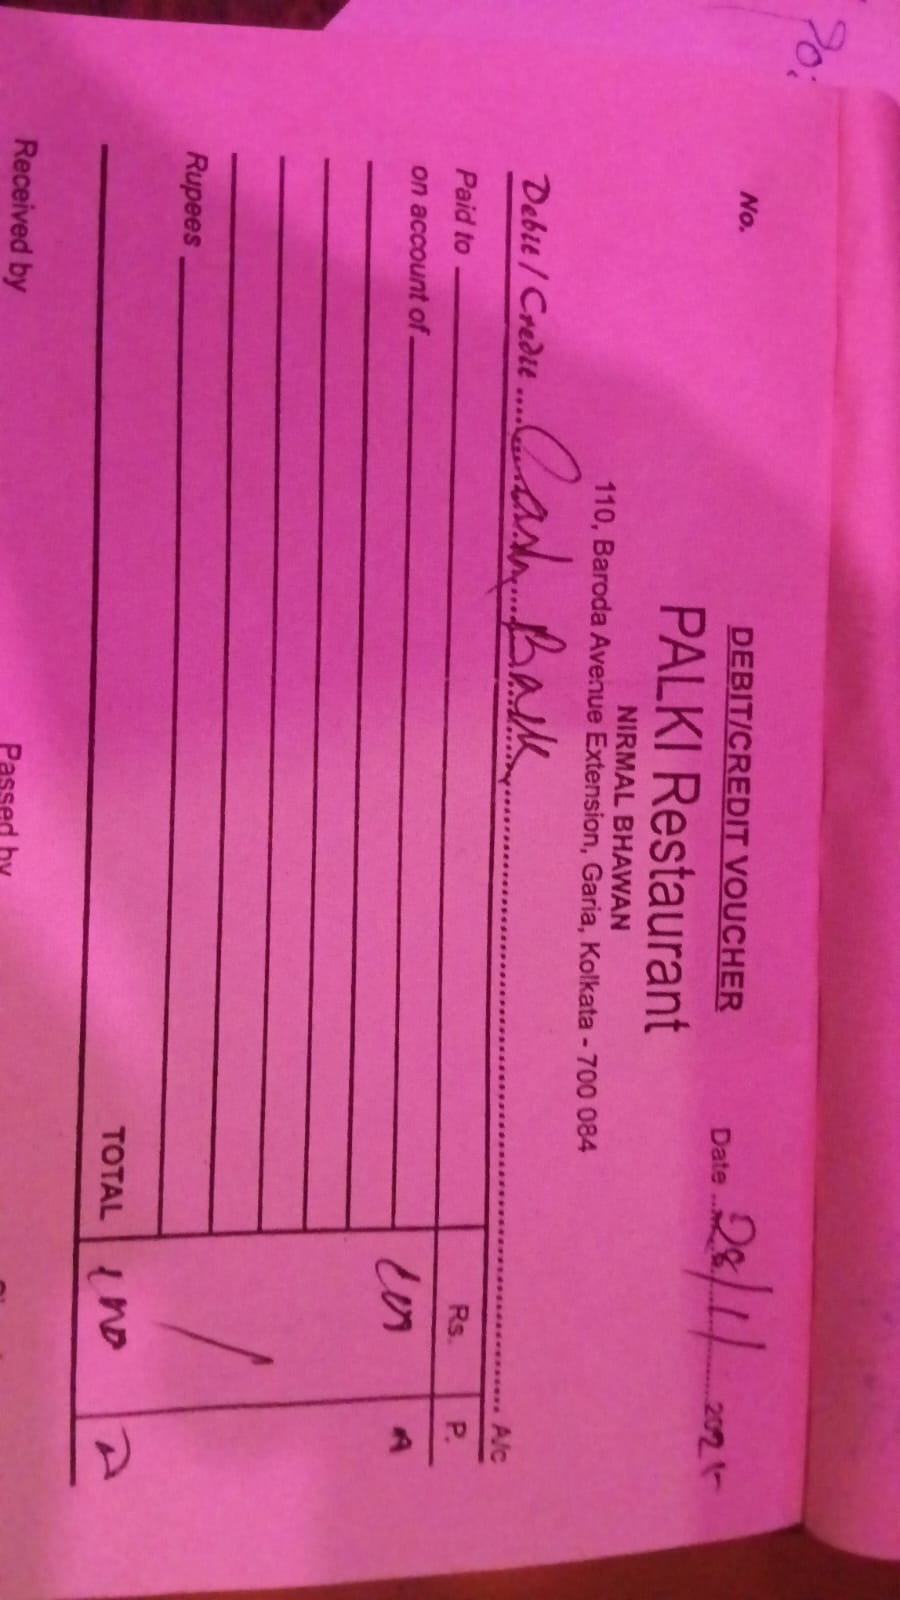 DEBIT/CREDIT VOUCHER
No.
Date ........ 28/11 ........ 202
PALKI Restaurant
NIRMAL BHAWAN
110, Baroda Avenue Extension, Garia, Kolkata - 700 084
Debit / Credit .... Cash Back .... A/c
Paid to
Rs. P.
on account of
Rupees
TOTAL
Received by
Passed by